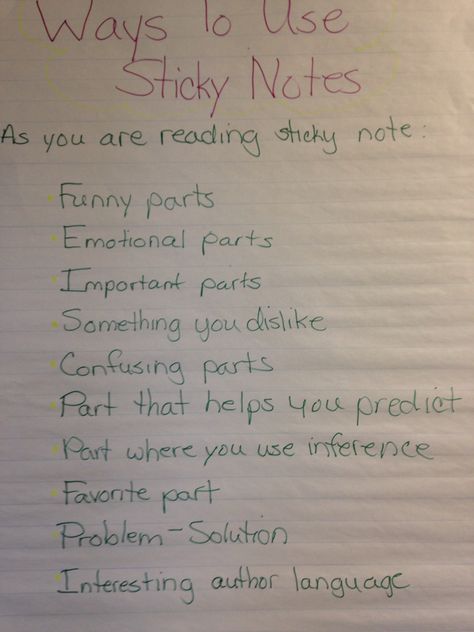 Ways To Use
Sticky Notes
As you are reading sticky note:
· Funny parts
· Emotional parts
· Important parts
· Something you dislike
· Confusing parts
· Part that helps you predict
· Part where you use inference
· Favorite part
· Problem-Solution
· Interesting author language